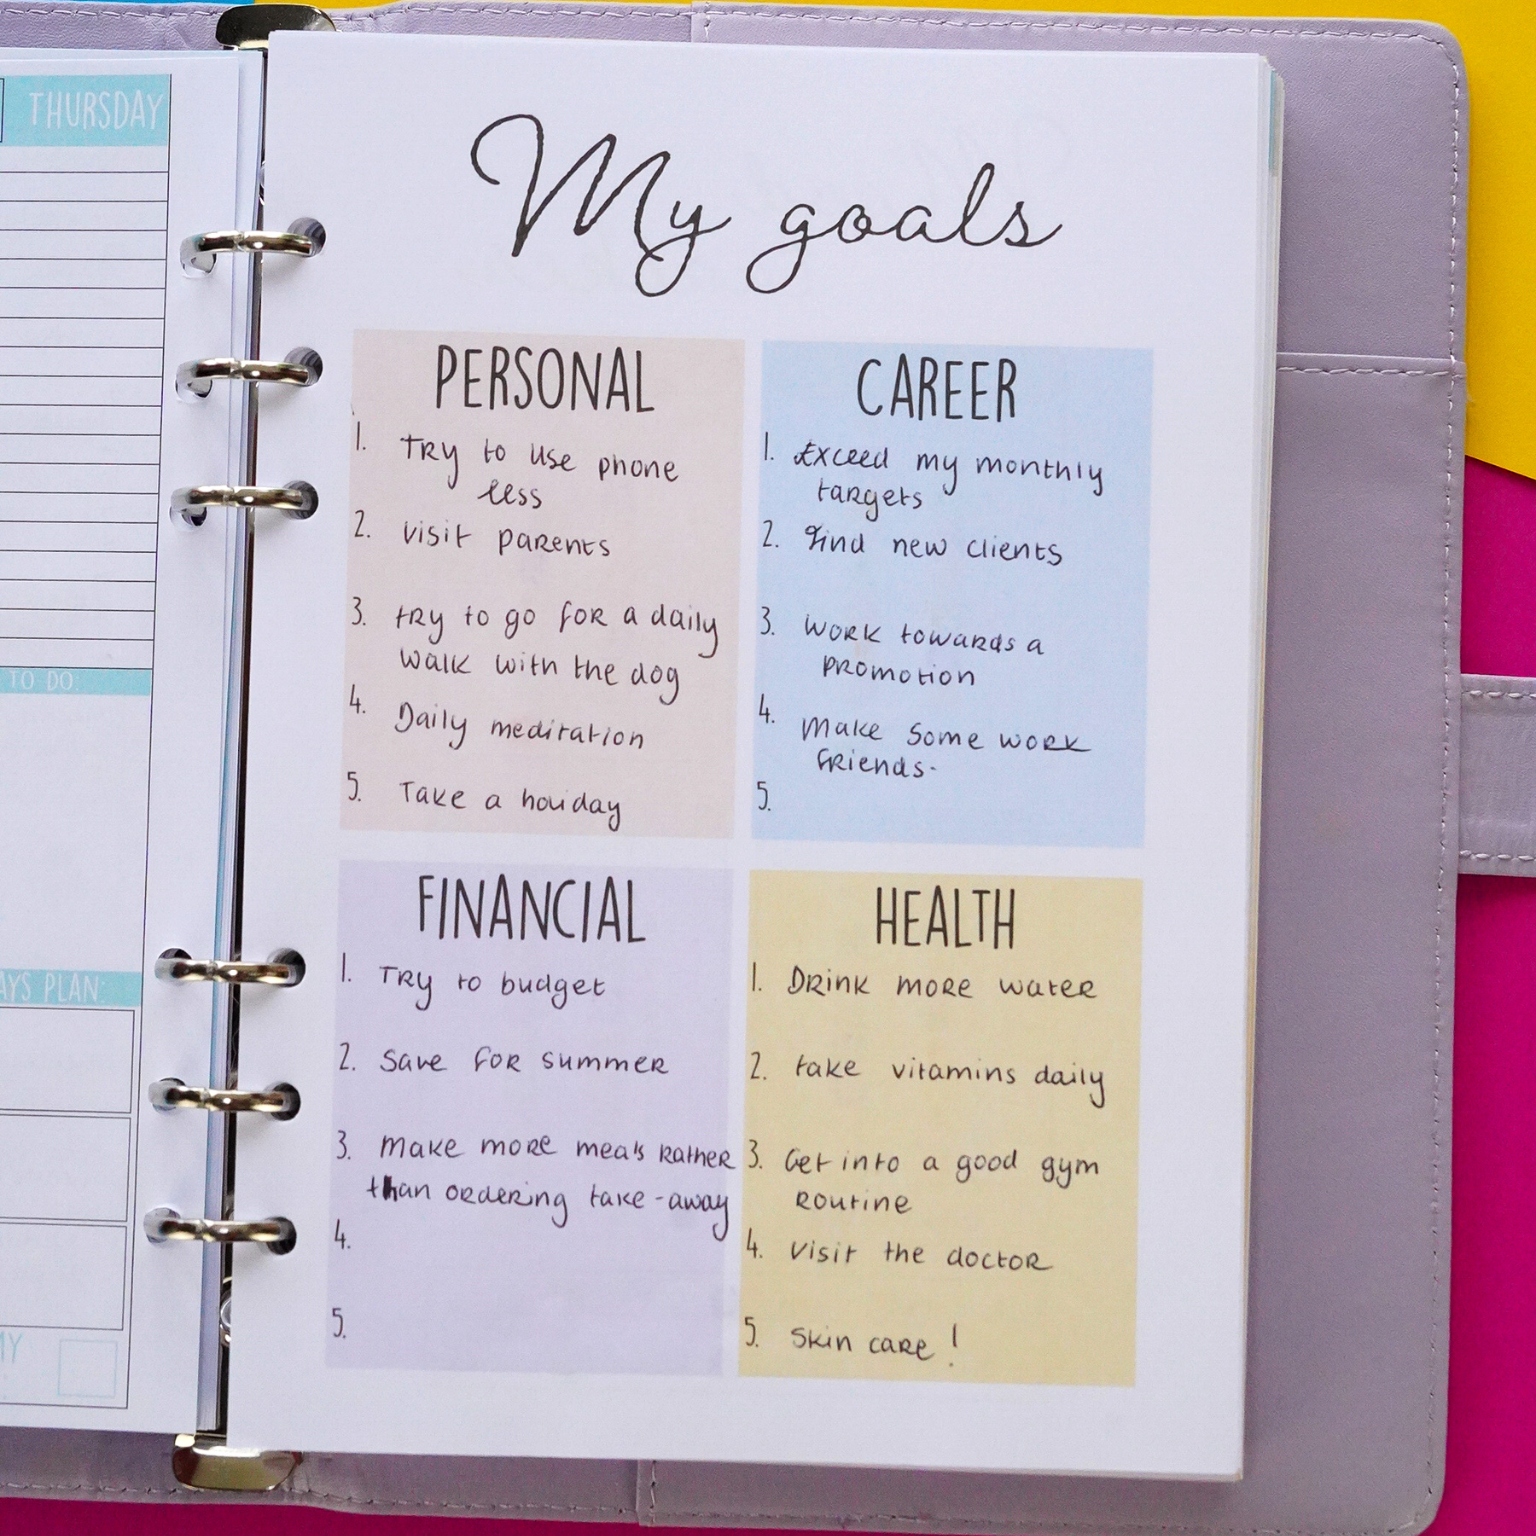 THURSDAY
TO DO:
AYS PLAN:
MY
My goals
PERSONAL
1. Try to use phone
less
2. visit parents
3. try to go for a daily
walk with the dog
4. Daily meditation
5. Take a holiday
CAREER
1. Exceed my monthly
targets
2. Find new clients
3. Work towards a
promotion
4. Make some work
friends.
5.
FINANCIAL
1. Try to budget
2. Save for summer
3. Make more meals rather
than ordering take-away
4.
5.
HEALTH
1. Drink more water
2. take vitamins daily
3. Get into a good gym
routine
4. Visit the doctor
5. Skin care!